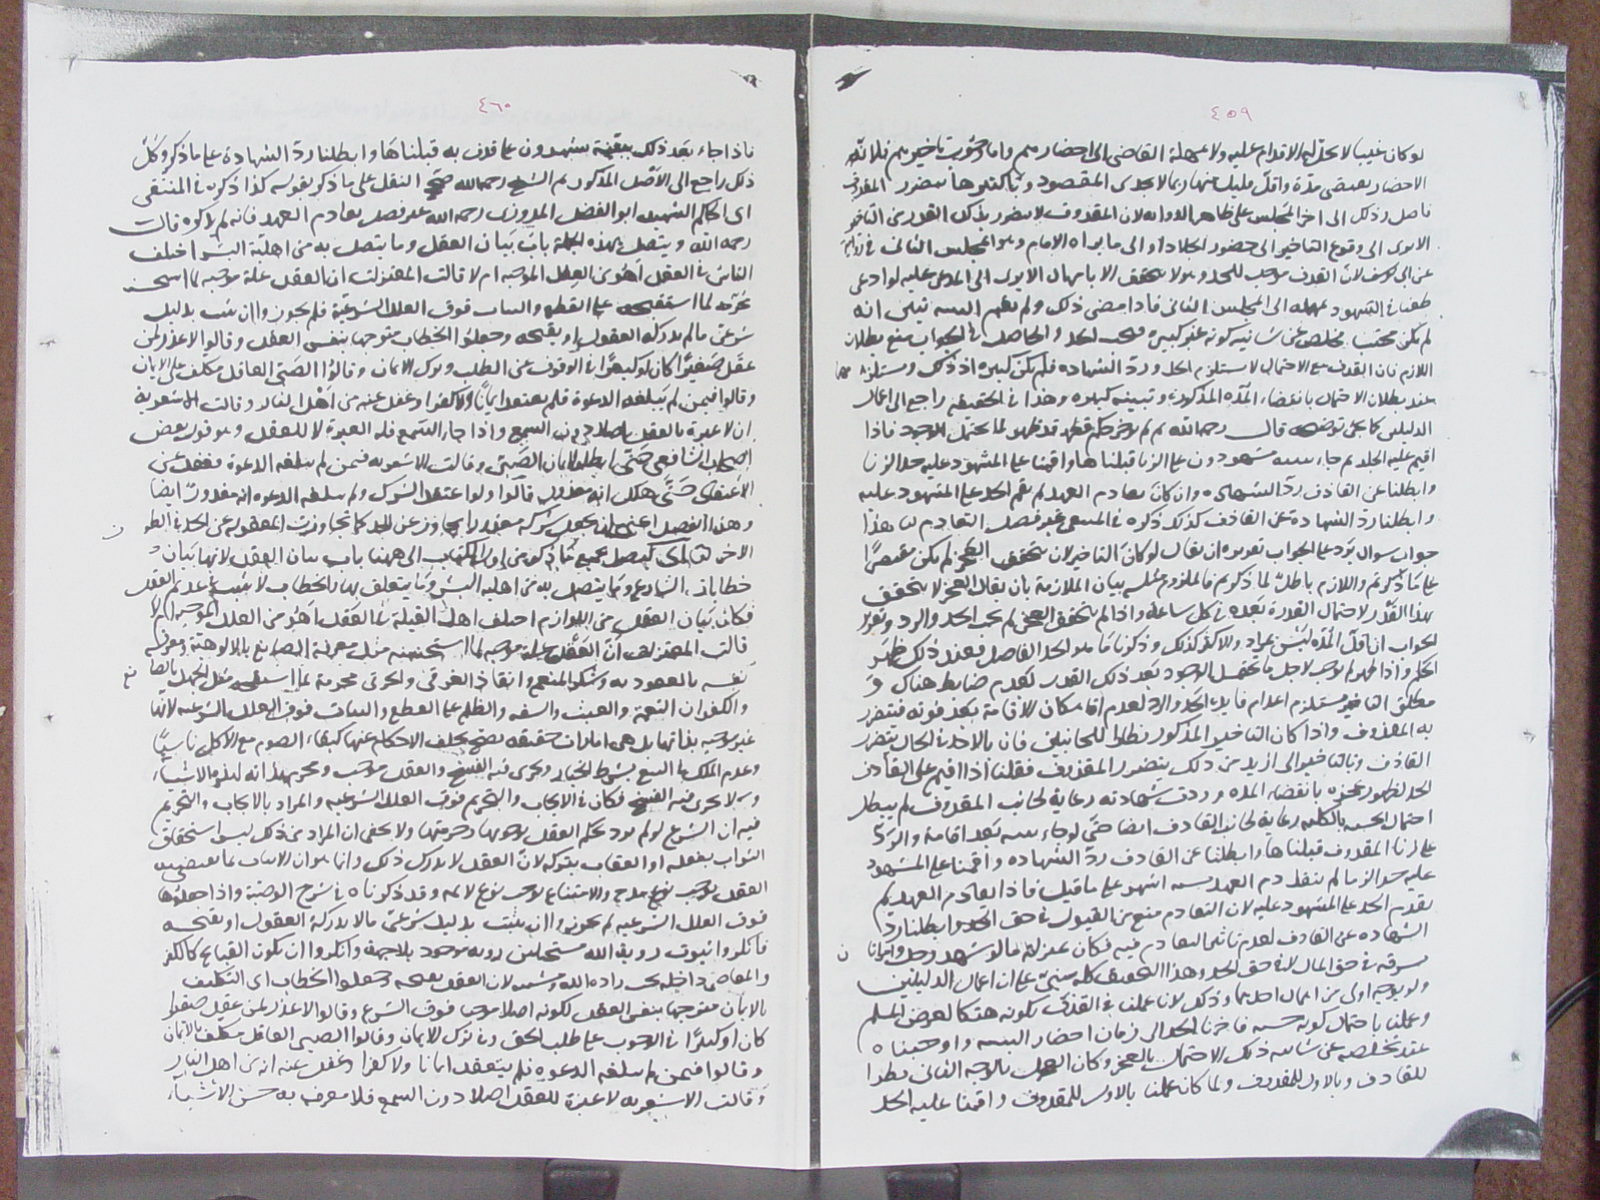 ٤٥٩
لو كان غيبا لا يحل له الاقدام عليه ولا يمهله القاضي الى احضارهم واما وجوب تاخيرهم فلانه
الاحضار يقتضي مدة واقل مليك منها ربما لا يجدي المقصود وبأكثرها يتضرر المقذوف
ناصل وذلك الى اخر المجلس على ظاهر الرواية لان المقذوف لا يتضرر بذلك القدر من التاخير
الا يرى الى وقوع التاخير الى حضور الجلاد او الى ما يراه الامام وهو المجلس الثاني في رواية
عن ابي يوسف لان القذف موجب للحد ولا يتحقق الا بامهال الا يرى الى المدعى عليه لو ادعى
طعنا في الشهود يمهله الى المجلس الثاني فاذا مضى ذلك ولم يقم البينة تبين انه
لم يكن محتسب كونه غير كبيرة فيجب الحد والحاصل في الجواب منع بطلان
اللازم فان القذف مع الاحتمال لا يستلزم الحد ورد الشهادة فلم يكن كبيرة اذ ذاك ويستلزمها
عند بطلان الاحتمال بانقضاء المدة المذكورة وتبينه كبيرة وهذا في الحقيقة راجع الى اعمال
الدليلين كما يجيء توضيحه قال رحمه الله ثم لم يؤخر حكم قد ظهر لما يحتمل الوجود فاذا
اقيم عليه الجلد ثم جاء ببينة يشهدون على الزنا قبلناها واقمنا على المشهود عليه حد الزنا
وابطلنا عن القاذف رد الشهادة وان كان تقادم العهد لم نقم الحد على المشهود عليه
وابطلنا رد الشهادة عن القاذف كذلك ذكره في المنتقى غير فصل التقادم هذا
جواب سوال يرد على الجواب تقريره ان يقال لو كان التاخير لان يتحقق العجز لم يكن مقتصرا
على ما ذكرتم واللازم باطل لما ذكرتم فالملزوم مثله بيان الملازمة بان يقال العجز لا يتحقق
بهذا القدر لاحتمال القدرة بعده في كل ساعة واذا لم يتحقق العجز لم يجب الحد والرد وتقرير
الجواب ان اقل المدة ليس بمراد والاكثر كذلك وذكرنا ما هو الحد الفاصل فعند ذلك ظهر
الحكم واذا ظهر لم يؤخر لاجل ما يحتمل الوجود بعد ذلك القدر لعدم ضابط هناك و
مطلق التاخير مستلزم اعدام فايدة الحد والرد لعدم امكان الاقامة بعد فوته فيتضرر
به المقذوف واذا كان التاخير المذكور نظرا للجانبين فان بالاخذ في الحال يتضرر
القاذف وبالتاخير الى ازيد من ذلك يتضرر المقذوف فقلنا اذا اقيم على القاذف
الحد لظهور عجزه بانقضاء المدة وردت شهادته رعاية لجانب المقذوف لم يبطل
احتمال الحسبة بالكلية رعاية لجانب القاذف ايضا حتى لو جاء ببينة بعد اقامة والرد
على زنا المقذوف قبلناها وابطلنا عن القاذف رد الشهادة واقمنا على المشهود
عليه حد الزنا ما لم يتقادم العهد ستة اشهر على ما قيل فاذا تقادم العهد لم
نقدم الحد على المشهود عليه لان التقادم منع من القبول في حق الحد وابطلنا رد
الشهادة عن القاذف لعدم تاثير التقادم فيه فكان بمنزلة ما لو شهد رجل وامراتان
بسرقة في حق المال لا في حق الحد وهذا التحقيق كله مبني على ان اعمال الدليلين
ولو بوجه اولى من اهمال احدهما وذلك لانا عملنا في القذف بكونه هتكا لعرض المسلم
وعملنا باحتمال كونه حسبة فاخرنا الحد الى زمان احضار البينة واوجبناه
عند تخلصه عن شائبة ذلك الاحتمال بالعجز وكان العمل بالوجه الثاني نظرا
للقاذف وبالاول للمقذوف ولما كان عملنا بالاول للمقذوف واقمنا عليه الحد
٤٦٠
فاذا جاء بعد ذلك ببينة يشهدون على ما قذف به قبلناها وابطلنا رد الشهادة على ما ذكر وكل
ذلك راجع الى الاصل المذكور ثم الشيخ رحمه الله صحح النقل على ما ذكر بقوله كذا ذكره في المنتقى
اي الحاكم الشهيد ابو الفضل المروزي رحمه الله غير فصل تقادم العهد فانه لم يذكره قال
رحمه الله ويتصل بهذه الجملة باب بيان العقل وما يتصل به من اهلية البشر اختلف
الناس في العقل اهو من العلل الموجبة ام لا قالت المعتزلة ان العقل علة موجبة لما استحسنه
محرمة لما استقبحه على القطع والبتات فوق العلل الشرعية فلم يجوزوا ان يثبت بدليل
شرعي ما لم يدركه العقول او يقبحه وجعلوا الخطاب متوجها بنفس العقل وقالوا لا عذر لمن
عقل صغيرا كان او كبيرا في الوقوف عن الطلب وترك الايمان وقالوا الصبي العاقل مكلف على الايمان
وقالوا فيمن لم يبلغه الدعوة فلم يعتقد ايمانا ولا كفرا وغفل عنه من اهل النار وقالت الاشعرية
ان لا عبرة بالعقل اصلا دون السمع واذا جاء السمع فله العبرة لا للعقل وهو قول بعض
اصحاب الشافعي حتى ابطلوا ايمان الصبي وقالت الاشعرية فيمن لم يبلغه الدعوة فغفل عن
الاعتقاد حتى هلك انه معذور قالوا ولو اعتقد الشرك ولم يبلغه الدعوة انه معذور ايضا
وهذا الفصل اعني ان يجعل شركه معذورا تجاوز عن الحد كما تجاوزت المعتزلة عن الحد في الطرف
الاخر لما فصل جميع ما ذكر من اول الكتاب الى ههنا باب بيان العقل لانها بيان
خطابات الشارع وما يتصل به من اهلية البشر وما يتعلق بها والخطاب لا يثبت في عديم العقل
فكان بيان العقل من اللوازم اختلف اهل القبلة في العقل اهو من العلل الموجبة ام لا
قالت المعتزلة ان العقل علة موجبة لما استحسنه مثل معرفة الصانع بالالوهية ومعرفة
نفسه بالعبودية وشكر المنعم وانقاذ الغرقى والحرقى محرمة لما استقبحه مثل الجهل بالصانع
والكفران النعمة والعبث والسفه والظلم على القطع والبتات فوق العلل الشرعية لانها
غير موجبة بذاتها بل هي امارات حقيقة يصح تخلف الاحكام عنها كبقاء الصوم مع الاكل ناسيا
وعدم الملك في البيع بشرط الخيار ويجري فيه الفسخ والعقل موجب ومحرم بذاته لهذه الاشياء
ولا يجري فيه الفسخ فكان في الايجاب والتحريم فوق العلل الشرعية والمراد بالايجاب والتحريم
فيه ان الشرع لو لم يرد يحكم العقل بوجوبها وحرمتها ولا يخفى ان المراد من ذلك ليس استحقاق
الثواب بفعله او العقاب بتركه لان العقل لا يدرك ذلك وانما هو ان الاتيان بما يقتضيه
العقل يوجب نوع مدح والامتناع يوجب نوع لائمة وقد ذكرناه في شرح الوصية واذا جعلوها
فوق العلل الشرعية لم يجوزوا ان يثبت بدليل شرعي ما لا يدركه العقول او يقبحه
فانكروا ثبوت رؤية الله مستحيلين رؤية موجود بلا جهة وانكروا ان يكون القبايح كالكفر
والمعاصي داخلة تحت ارادة الله ومشيته لان العقل يقبحه وجعلوا الخطاب اي التكليف
بالايمان متوجها بنفس العقل لكونه اصلا موجبا فوق الشرع وقالوا لا عذر لمن عقل صغيرا
كان او كبيرا في الوجوب على طلب الحق وفي ترك الايمان وقالوا الصبي العاقل مكلف بالايمان
وقالوا فيمن لم يبلغه الدعوة فلم يعتقد ايمانا ولا كفرا وغفل عنه انه من اهل النار
وقالت الاشعرية لا عبرة للعقل اصلا دون السمع فلا معرفة به حسن الاشياء